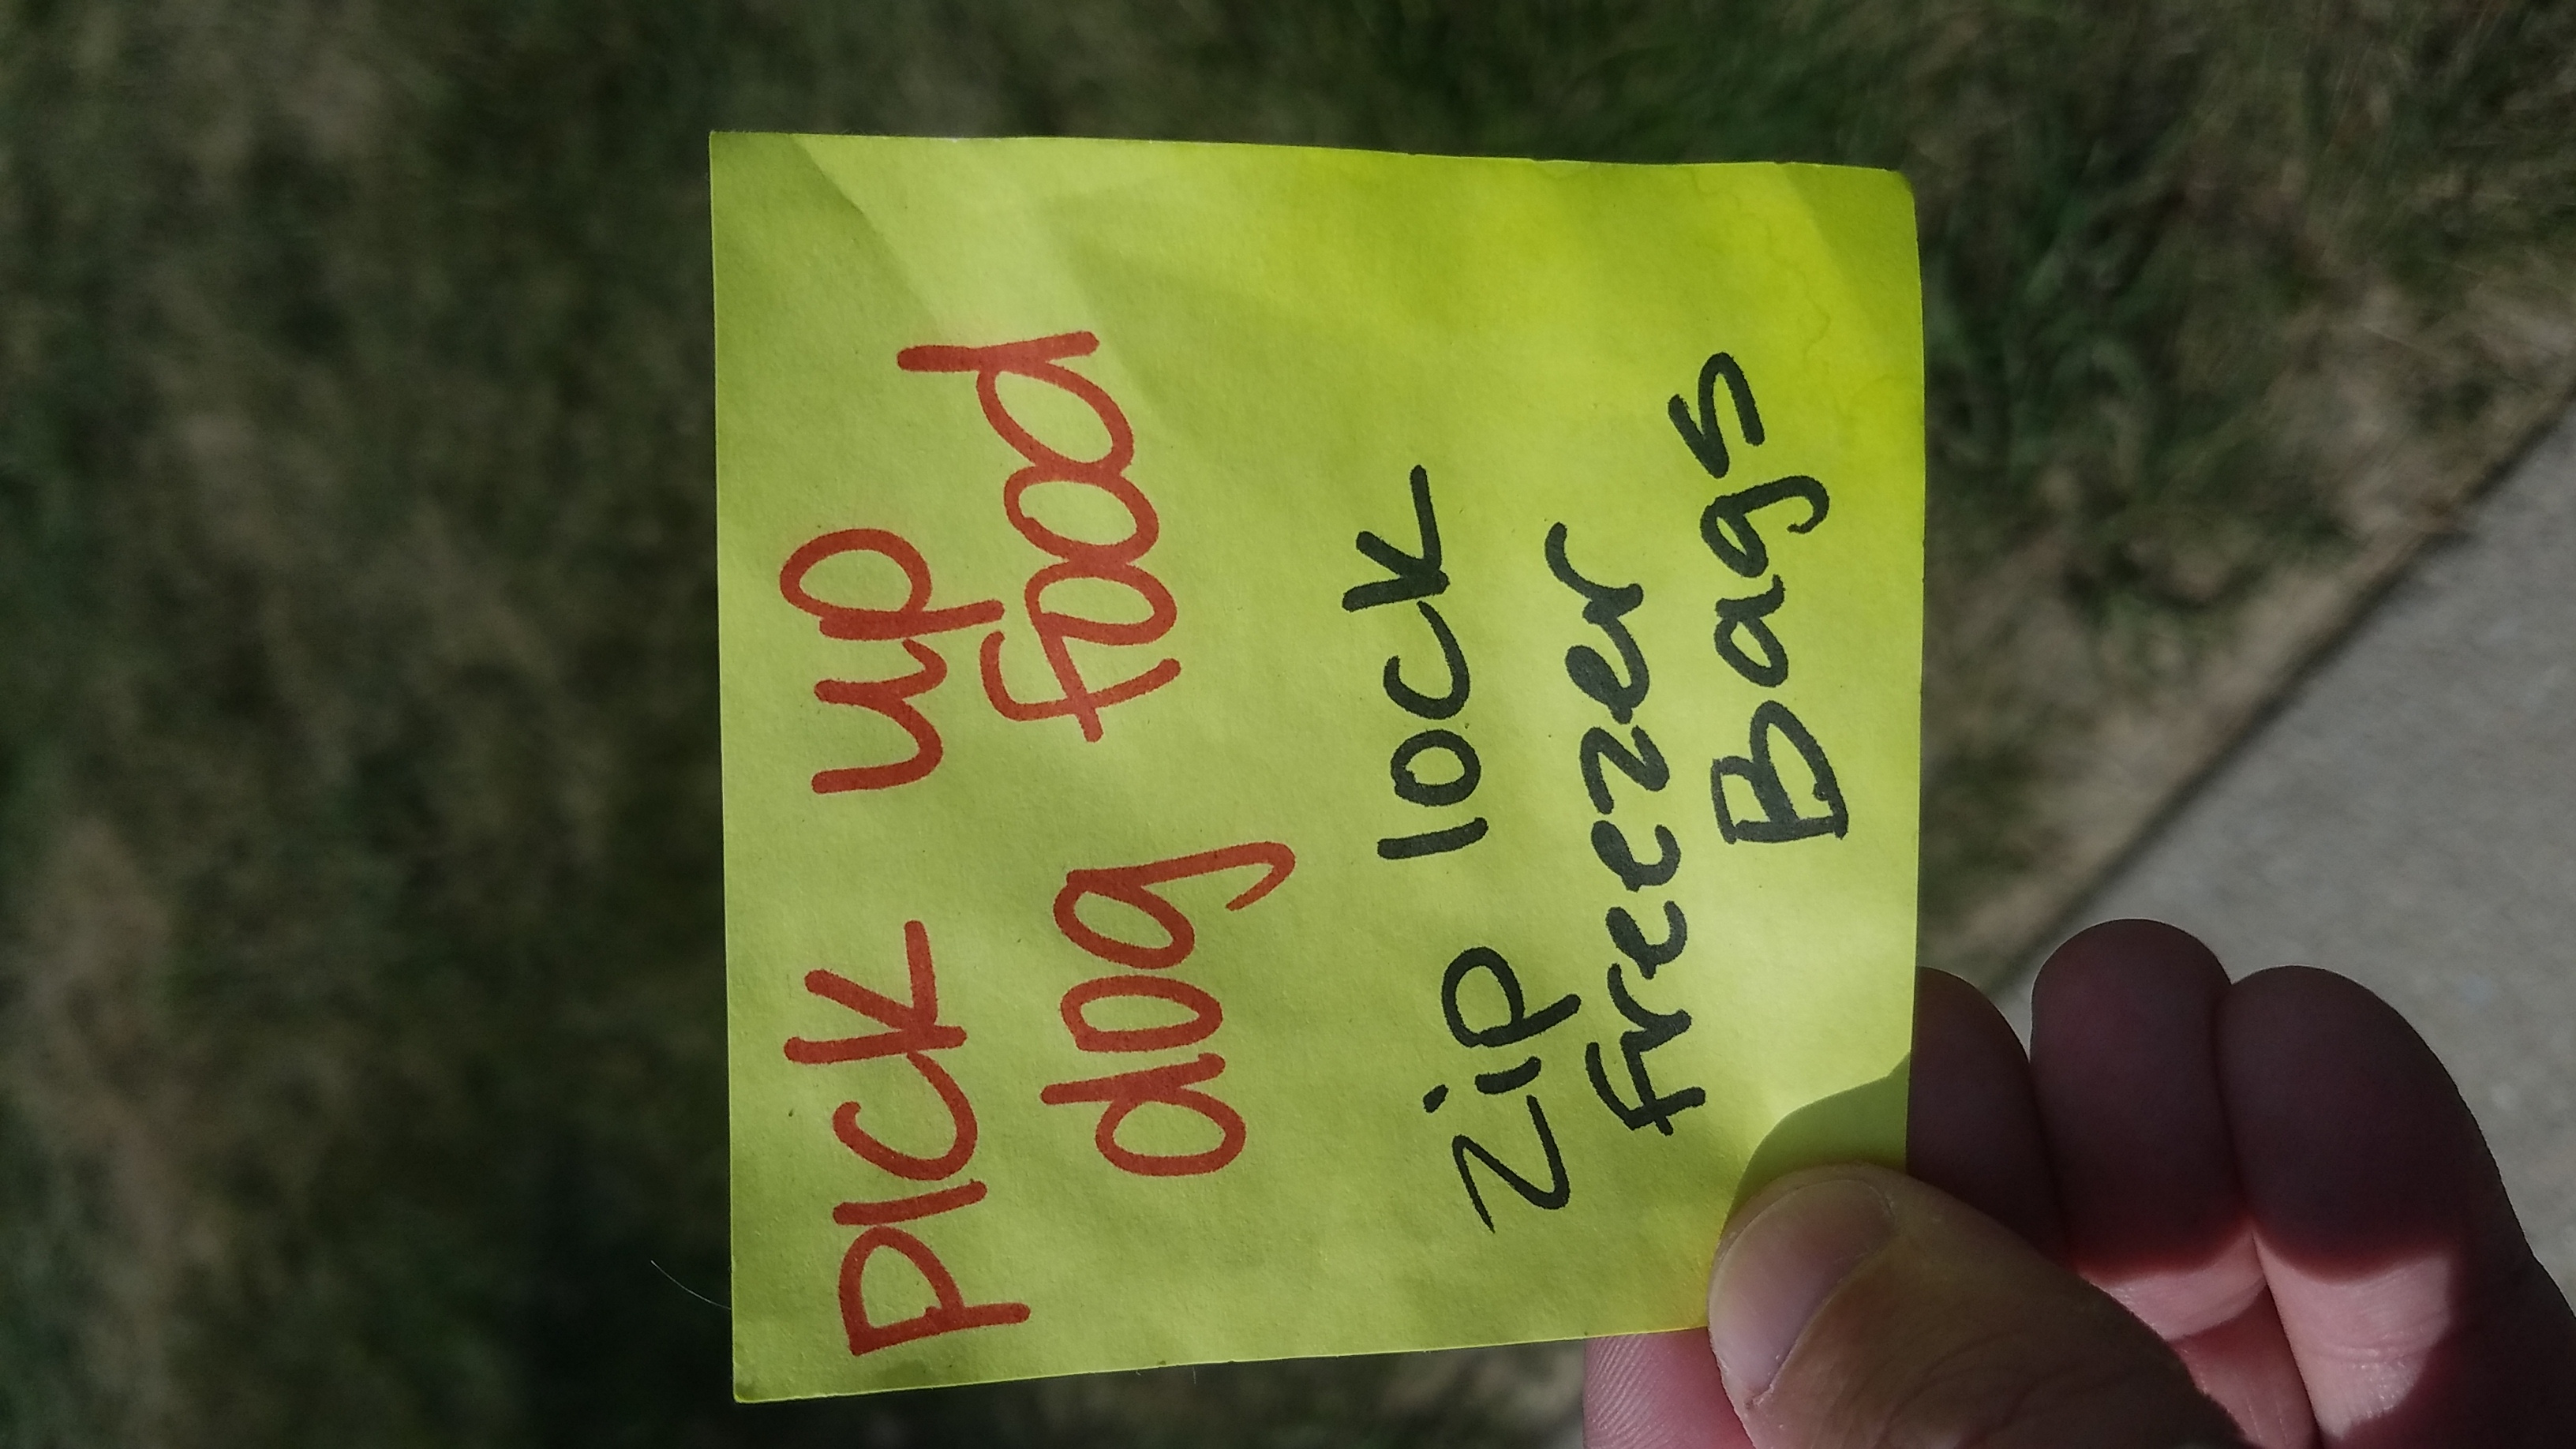 pick up
dog food
Zip lock
freezer
Bags